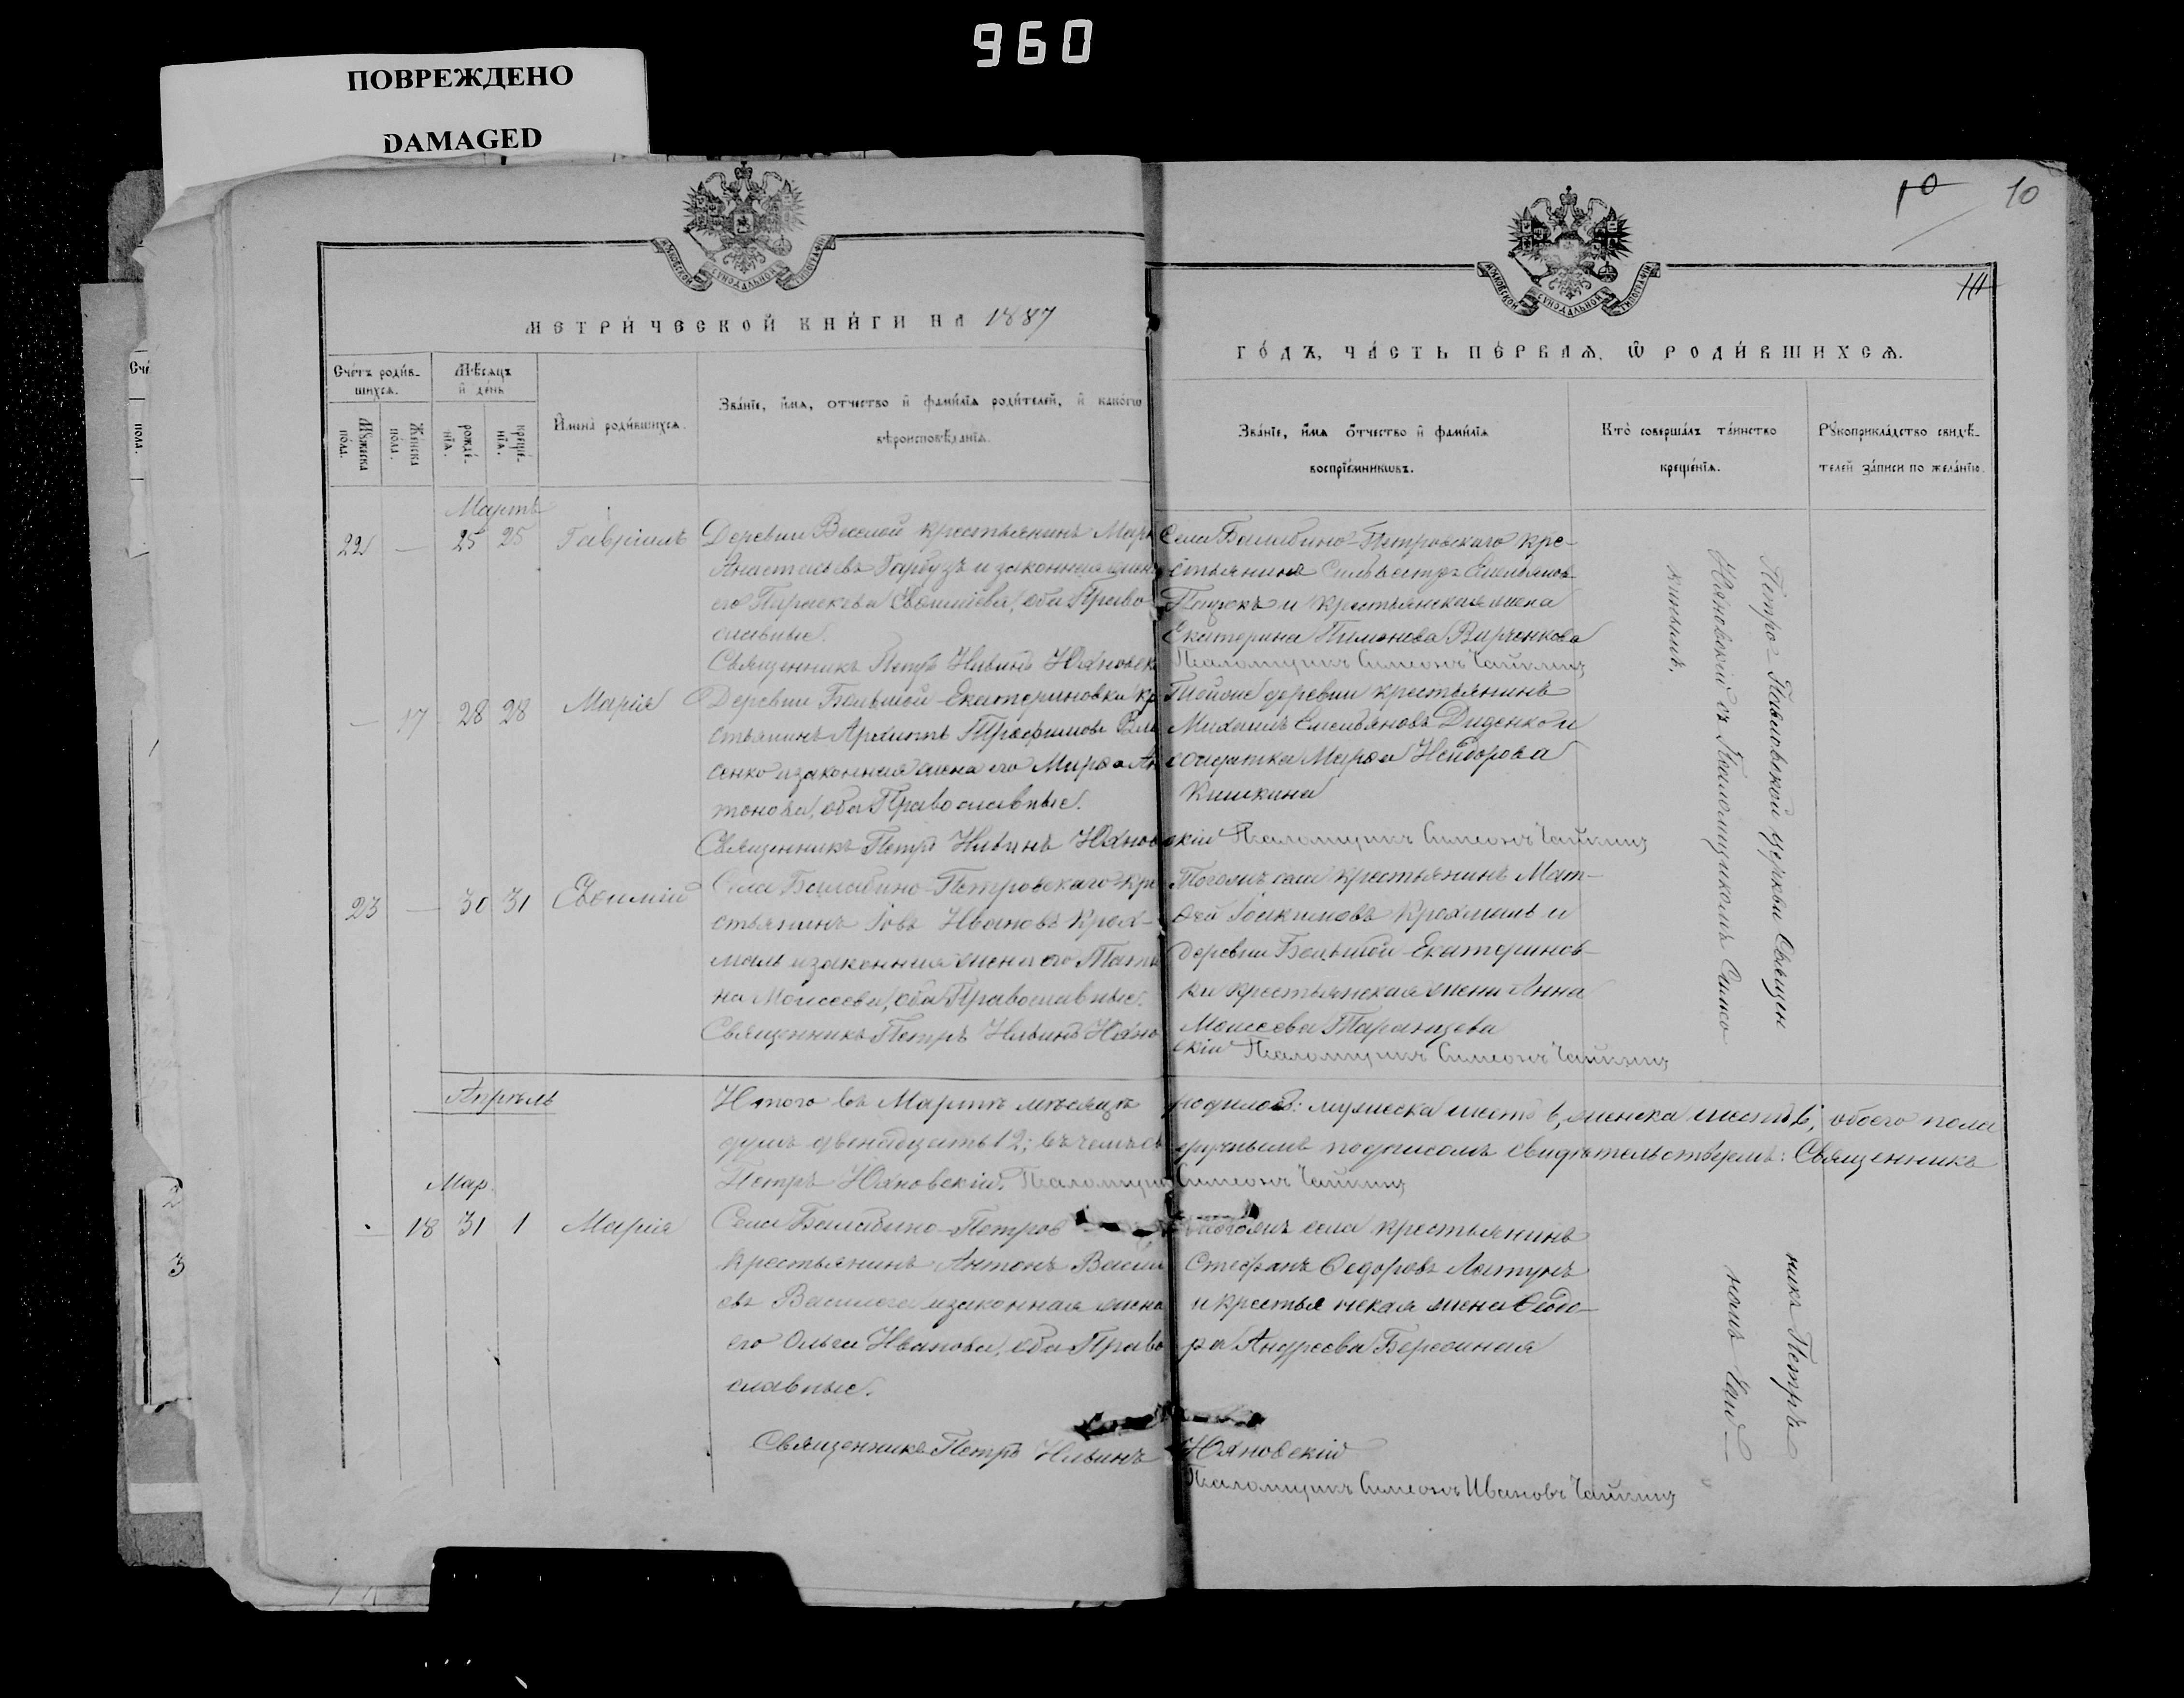 960
ПОВРЕЖДЕНО
DAMAGED
10 10
МЕТРИ́ЧЕСКОЙ КНИ́ГИ НА 1887
ГО́ДЪ, ЧА́СТЬ ПЕ́РВАЯ, Ѡ РОДИ́ВШИХСЯ.
Сче́тъ роди́в-
шихся.
Мѣ́сяцъ
и де́нь
Му́жеска по́ла.
Же́нска по́ла.
рожде́-
нїя.
креще́-
нїя.
И҆мена̀ роди́вшихся.
Зва́нїе, и҆́мя, отчество и҆ фами́лїя роди́телей, и҆ како́гѡ
вѣроисповѣ́данїя.
Зва́нїе, и҆́мя о҆́тчество и҆ фами́лїя
воспрїе́мникѡвъ.
Кто̀ соверша́лъ та́инство
креще́нїя.
Рꙋкоприкла́дство свидѣ́-
телей за́писи по жела́нїю.
Мартъ
22 — 25 25 Гавріилъ
Деревни Веселой крестьянинъ Марк
Анастасьевъ Гарбузъ и законная жена
его Параскева Евѳиміева, оба Право-
славные.
Священникъ Петръ Ильинъ Юхновск
Села Балабино-Петровскаго кре-
стьянинъ Сильвестръ Емельяновъ
Пацюкъ и крестьянская жена
Екатерина Пимонова Вирченкова
Псаломщикъ Симеонъ Чайкинъ
— 17 28 28 Марія
Деревни Большой-Екатериновки кре
стьянинъ Архипъ Трофимовъ Вла
сенко и законная жена его Марѳа Ан
тонова, оба Православные.
Священникъ Петръ Ильинъ Юхнов
Тойже деревни крестьянинъ
Михаилъ Емельяновъ Диденко и
солдатка Марѳа
Кишкина
скій Псаломщикъ Симеонъ Чайкинъ
23 — 30 31 Евѳимій
Села Балабино-Петровскаго кре
стьянинъ Іовъ Ивановъ Крох-
маль и законная жена его Татья
на Моисеева, оба Православные.
Священникъ Петръ Ильинъ Юхно
Тогожъ села крестьянинъ Мат-
ѳей Іоакимовъ Крохмаль и
деревни Большой-Екатеринов-
ки крестьянская жена Анна
Моисеева Таранцева
скій Псаломщикъ Симеонъ Чайкинъ
Петро-Павловской церкви Священ
Юхновскій съ Псаломщикомъ Симео
кинымъ.
Апрѣль
Итого въ Мартѣ мѣсяцѣ родилось: мужеска шесть 6, женска шесть 6, обоего пола
душъ двенадцать 12; въ чемъ своеручнымъ подписомъ свидѣтельствуемъ: Священникъ
Петръ Юхновскій. Псаломщикъ Симеонъ Чайкинъ
Мар.
— 18 31 1 Марія
Села Балабино-Петров
крестьянинъ Антонъ Васил
евъ и законная жена
его Ольга Иванова, оба Право
славные.
Священникъ Петръ Ильинъ
Тогожъ села крестьянинъ
Стефанъ Ѳедоровъ Лагунъ
и крестьянская жена Ѳеодо-
ра Андреева
Юхновскій
Псаломщикъ Симеонъ Ивановъ Чайкинъ
никъ Петръ
номъ Чай-
2
3